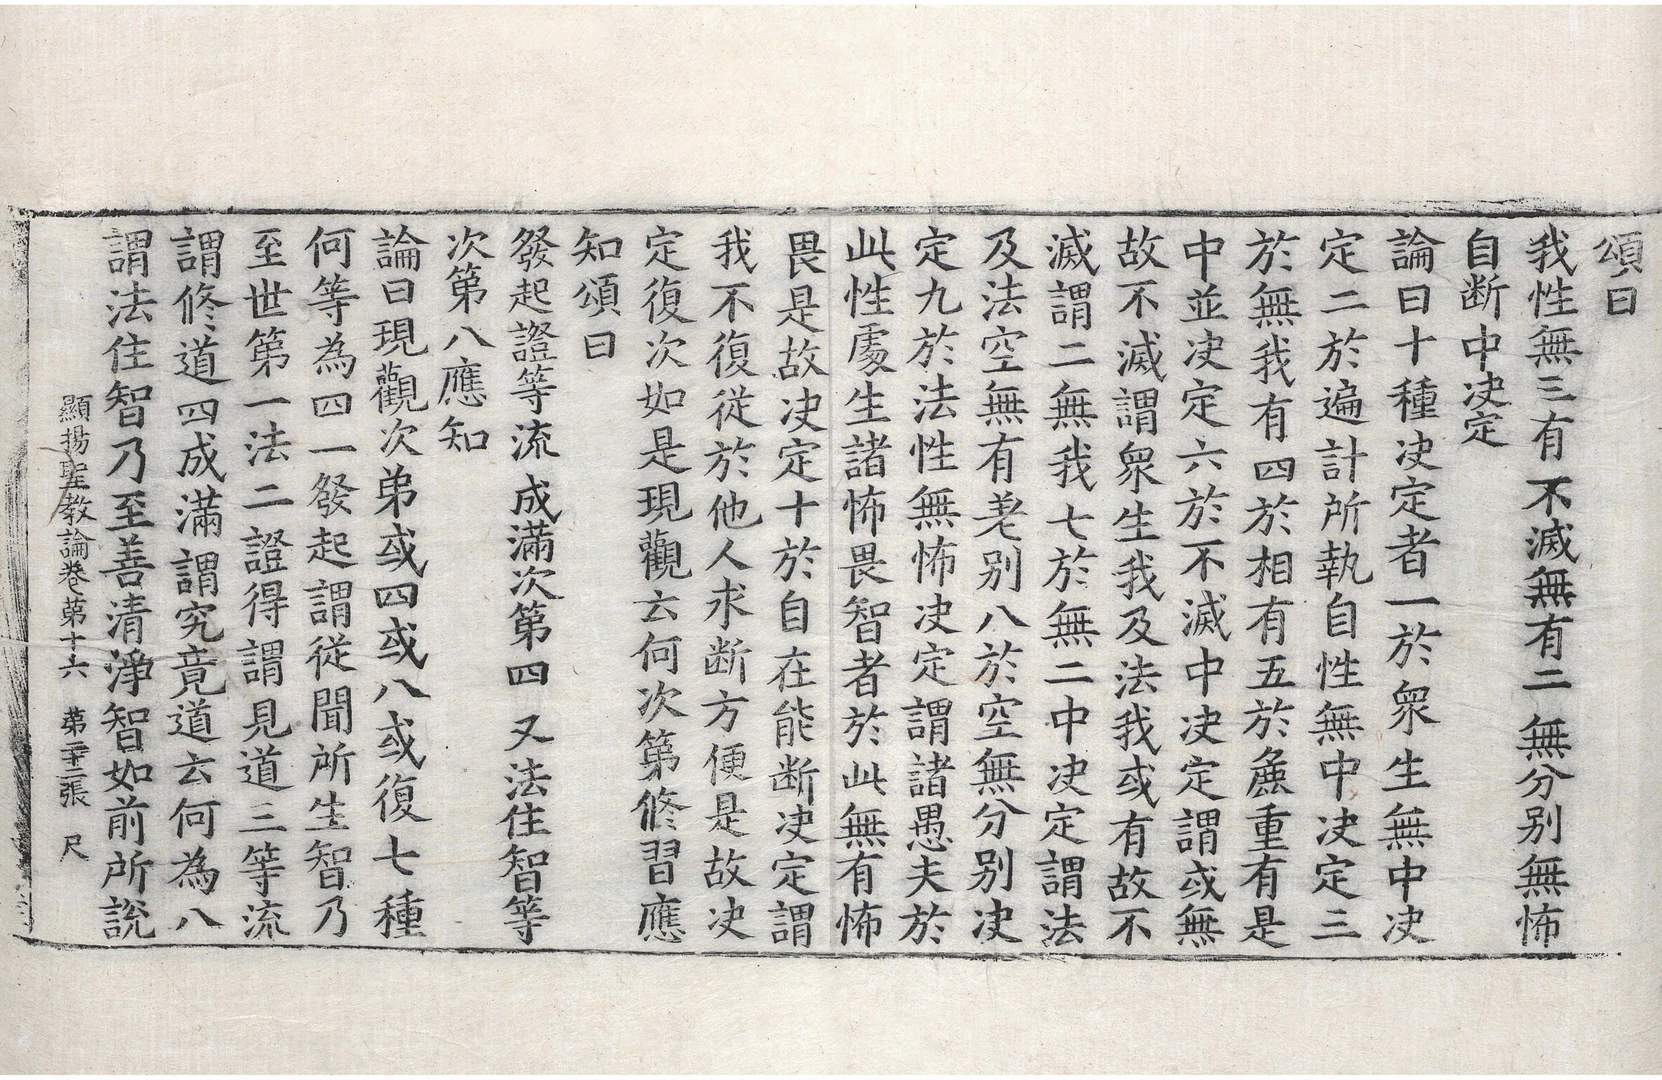 頌曰
我性無三有 不滅無有二 無分别無怖
自断中决定
論曰十種决定者一於衆生無中决
定二於遍計所執自性無中决定三
於無我有四於相有五於麁重有是
中並决定六於不滅中决定謂或無
故不滅謂衆生我及法我或有故不
滅謂二無我七於無二中决定謂法
及法空無有差别八於空無分别决
定九於法性無怖决定謂諸愚夫於
此性處生諸怖畏智者於此無有怖
畏是故决定十於自在能断决定謂
我不復從於他人求断方便是故决
定復次如是現觀云何次第修習應
知頌曰
發起證等流 成滿次第四 又法住智等
次第八應知
論曰現觀次弟或四或八或復七種
何等為四一發起謂從聞所生智乃
至世第一法二證得謂見道三等流
謂修道四成滿謂究竟道云何為八
謂法住智乃至善清淨智如前所說
顯揚聖教論卷第十六 第二十三張 尺